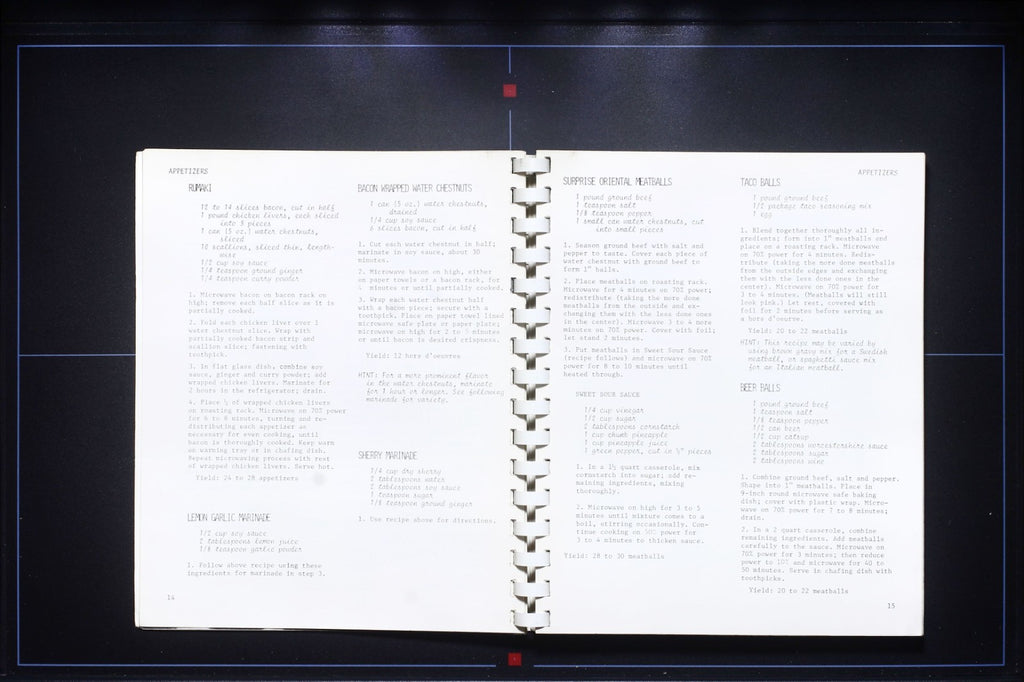 APPETIZERS
RUMAKI
10 to 14 slices bacon, cut in half
1 pound chicken livers, each sliced
into 3 pieces
1 can (5 oz.) water chestnuts,
sliced
10 scallions, sliced thin, length-
wise
1/2 cup soy sauce
1/4 teaspoon ground ginger
1/4 teaspoon curry powder
1. Microwave bacon on bacon rack on
high; remove each half slice as it is
partially cooked.
2. Fold each chicken liver over 1
water chestnut slice. Wrap with
partially cooked bacon strip and
scallion slice; fastening with
toothpick.
3. In flat glass dish, combine soy
sauce, ginger and curry powder; add
wrapped chicken livers. Marinate for
2 hours in the refrigerator; drain.
4. Place ½ of wrapped chicken livers
on roasting rack. Microwave on 70% power
for 6 to 8 minutes, turning and re-
distributing each appetizer as
necessary for even cooking, until
bacon is thoroughly cooked. Keep warm
on warming tray or in chafing dish.
Repeat microwaving process with rest
of wrapped chicken livers. Serve hot.
Yield: 24 to 28 appetizers
LEMON GARLIC MARINADE
1/2 cup soy sauce
2 tablespoons lemon juice
1/8 teaspoon garlic powder
1. Follow above recipe using these
ingredients for marinade in step 3.
14
BACON WRAPPED WATER CHESTNUTS
1 can (5 oz.) water chestnuts,
drained
1/4 cup soy sauce
6 slices bacon, cut in half
1. Cut each water chestnut in half;
marinate in soy sauce, about 30
minutes.
2. Microwave bacon on high, either
on paper towels or a bacon rack, for
4 minutes or until partially cooked.
3. Wrap each water chestnut half
with a bacon piece; secure with a
toothpick. Place on paper towel lined
microwave safe plate or paper plate;
microwave on high for 2 to 3 minutes
or until bacon is desired crispness.
Yield: 12 hors d'oeuvres
HINT: For a more prominent flavor
in the water chestnuts, marinate
for 1 hour or longer. See following
marinade for variety.
SHERRY MARINADE
1/4 cup dry sherry
2 tablespoons water
2 tablespoons soy sauce
1 teaspoon sugar
1/8 teaspoon ground ginger
1. Use recipe above for directions.
SURPRISE ORIENTAL MEATBALLS
1 pound ground beef
1 teaspoon salt
1/8 teaspoon pepper
1 small can water chestnuts, cut
into small pieces
1. Season ground beef with salt and
pepper to taste. Cover each piece of
water chestnut with ground beef to
form 1" balls.
2. Place meatballs on roasting rack.
Microwave for 4 minutes on 70% power;
redistribute (taking the more done
meatballs from the outside and ex-
changing them with the less done ones
in the center). Microwave 3 to 4 more
minutes on 70% power. Cover with foil;
let stand 2 minutes.
3. Put meatballs in Sweet Sour Sauce
(recipe follows) and microwave on 70%
power for 8 to 10 minutes until
heated through.
SWEET SOUR SAUCE
1/4 cup vinegar
1/2 cup sugar
2 tablespoons cornstarch
1 cup chunk pineapple
1 cup pineapple juice
1 green pepper, cut in ½" pieces
1. In a 1½ quart casserole, mix
cornstarch into sugar; add re-
maining ingredients, mixing
thoroughly.
2. Microwave on high for 3 to 5
minutes until mixture comes to a
boil, stirring occasionally. Con-
tinue cooking on 50% power for
3 to 4 minutes to thicken sauce.
Yield: 28 to 30 meatballs
APPETIZERS
TACO BALLS
1 pound ground beef
1/2 package taco seasoning mix
1 egg
1. Blend together thoroughly all in-
gredients; form into 1" meatballs and
place on a roasting rack. Microwave
on 70% power for 4 minutes. Redis-
tribute (taking the more done meatballs
from the outside edges and exchanging
them with the less done ones in the
center). Microwave on 70% power for
3 to 4 minutes. (Meatballs will still
look pink.) Let rest, covered with
foil for 2 minutes before serving as
a hors d'oeurve.
Yield: 20 to 22 meatballs
HINT: This recipe may be varied by
using brown gravy mix for a Swedish
meatball, or spaghetti sauce mix
for an Italian meatball.
BEER BALLS
1 pound ground beef
1 teaspoon salt
1/8 teaspoon pepper
1/2 can beer
1/2 cup catsup
2 tablespoons worcestershire sauce
2 tablespoons sugar
2 tablespoons wine
1. Combine ground beef, salt and pepper.
Shape into 1" meatballs. Place in
9-inch round microwave safe baking
dish; cover with plastic wrap. Micro-
wave on 70% power for 7 to 8 minutes;
drain.
2. In a 2 quart casserole, combine
remaining ingredients. Add meatballs
carefully to the sauce. Microwave on
70% power for 3 minutes; then reduce
power to 10% and microwave for 40 to
50 minutes. Serve in chafing dish with
toothpicks.
Yield: 20 to 22 meatballs
15